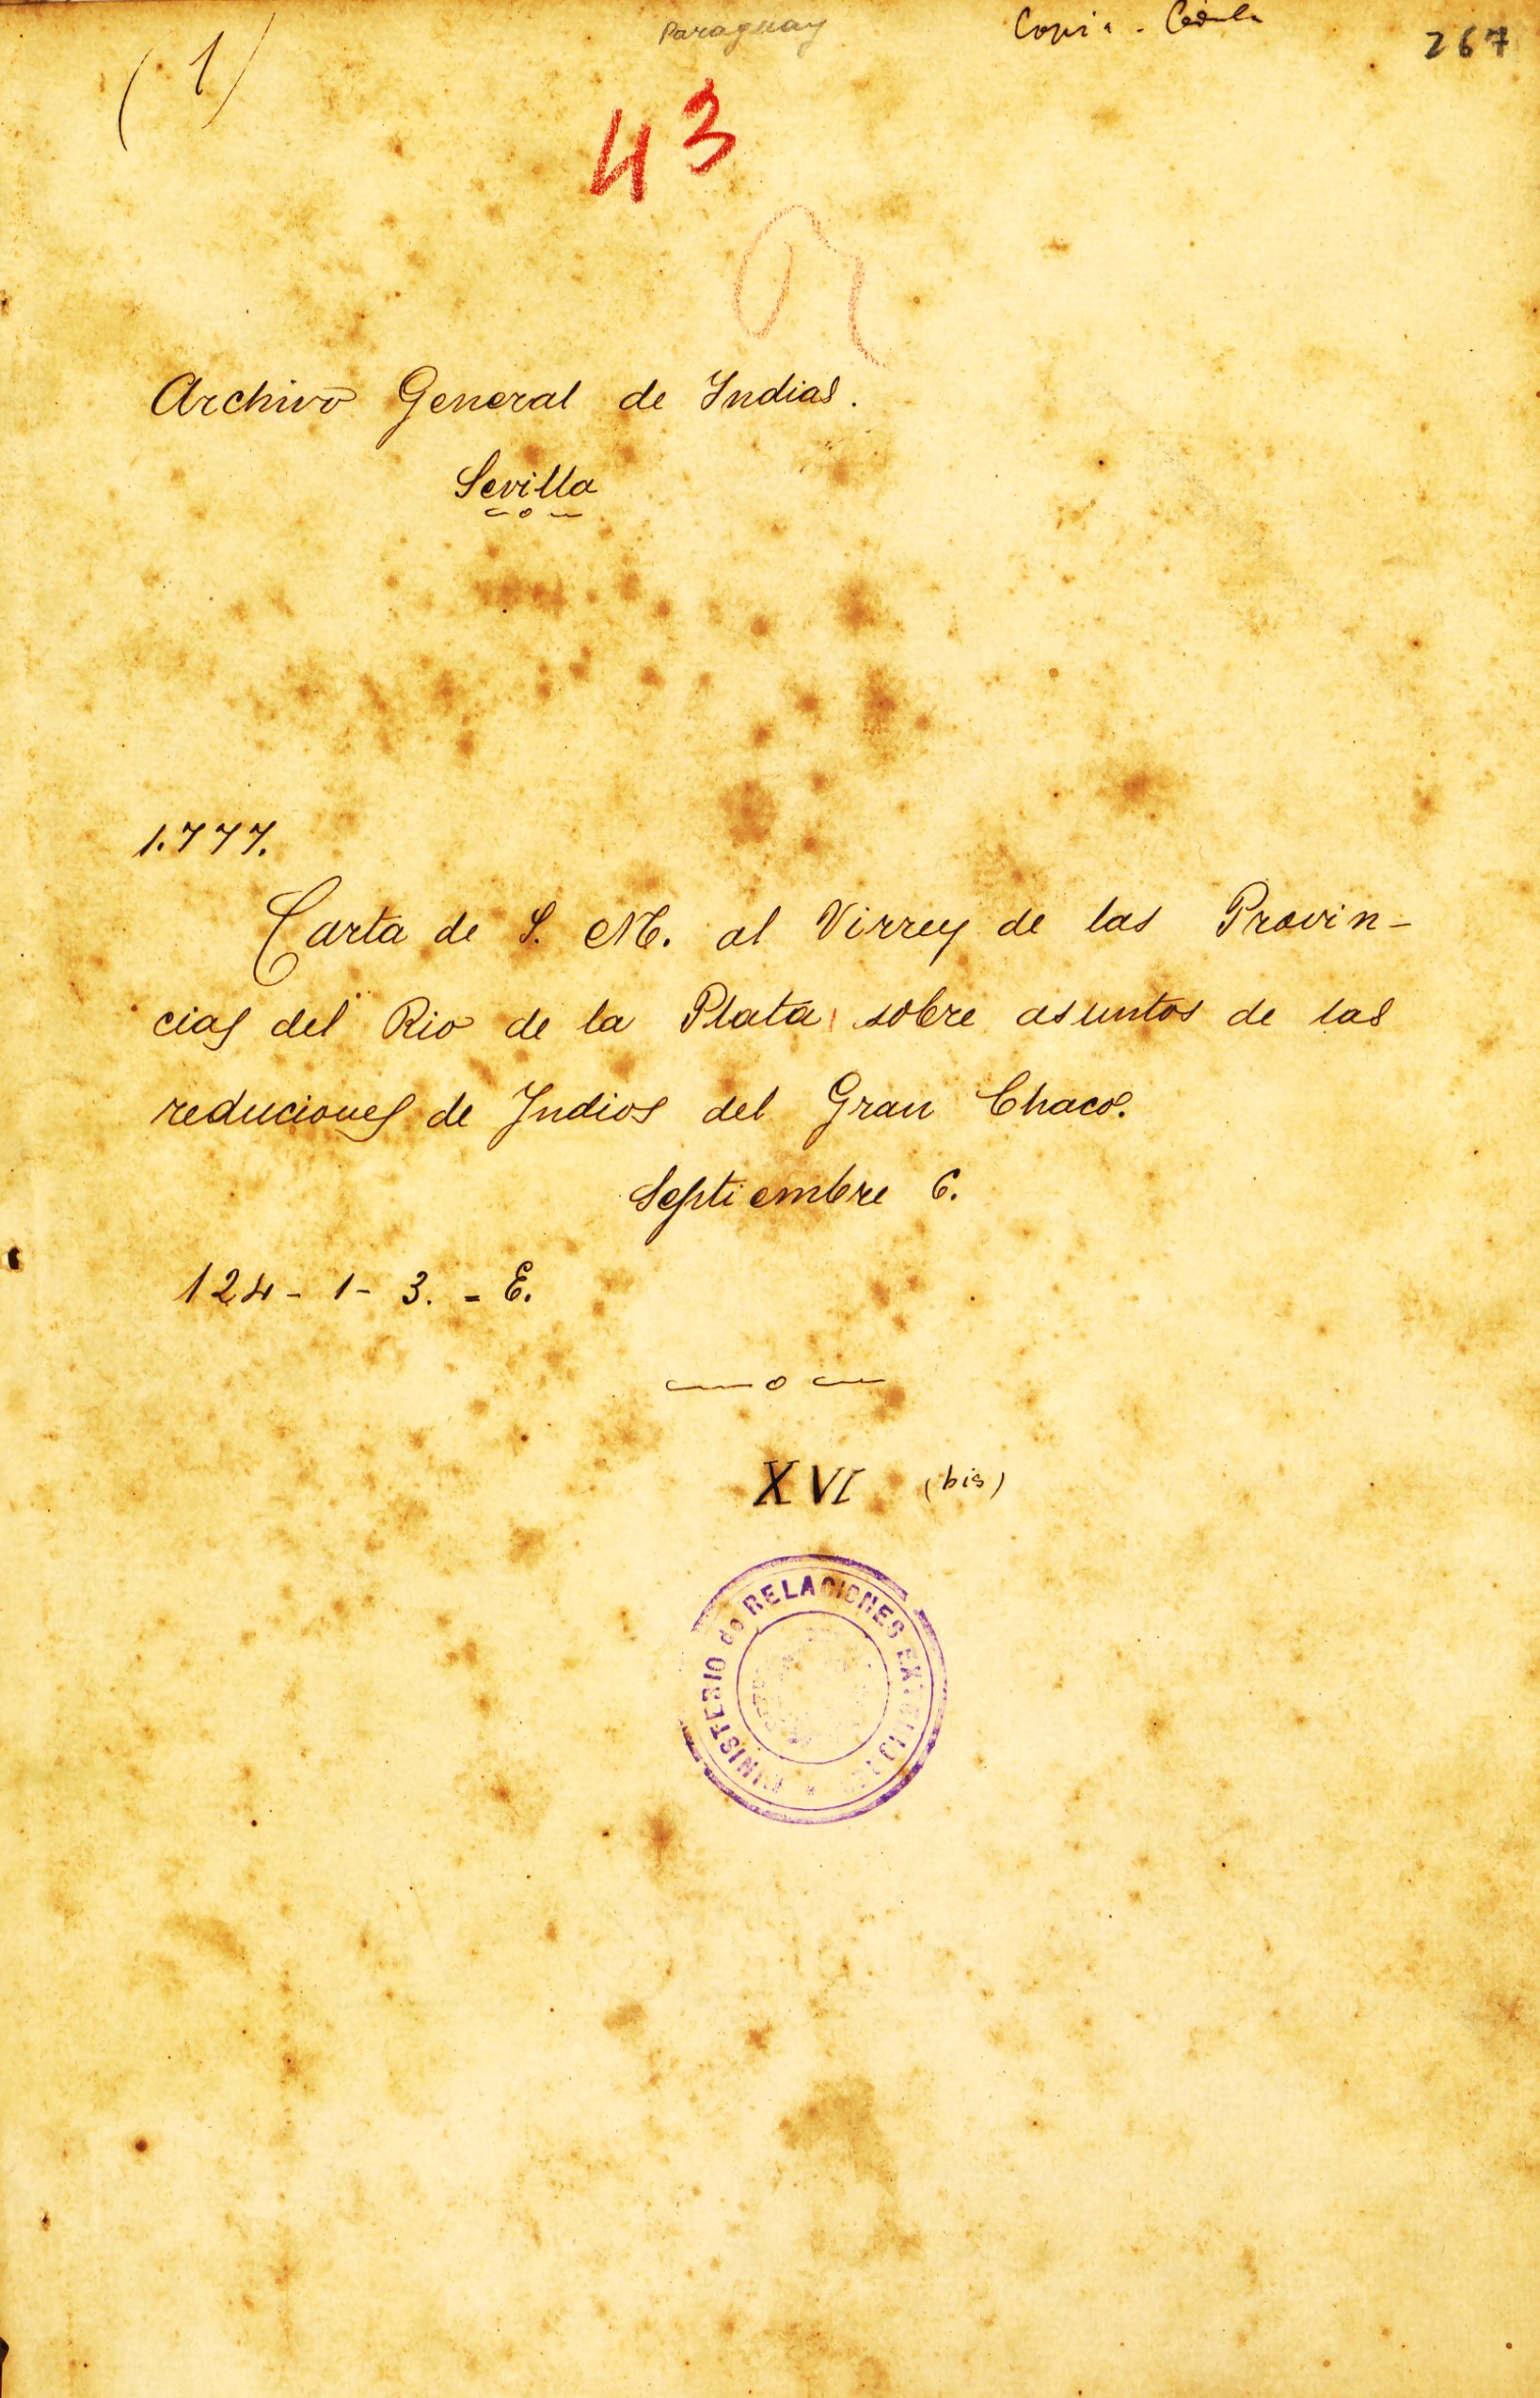 (1)
Paraguay
Copia - Cédula
267
43
Archivo General de Indias.
Sevilla
1.777.
Carta de S. M. al Virrey de las Provin-
cias del Rio de la Plata sobre asuntos de las
reduciones de Indios del Gran Chaco.
Septiembre 6.
124-1-3. = E.
XVI (bis)
MINISTERIO de RELACIONES EXTERIORES